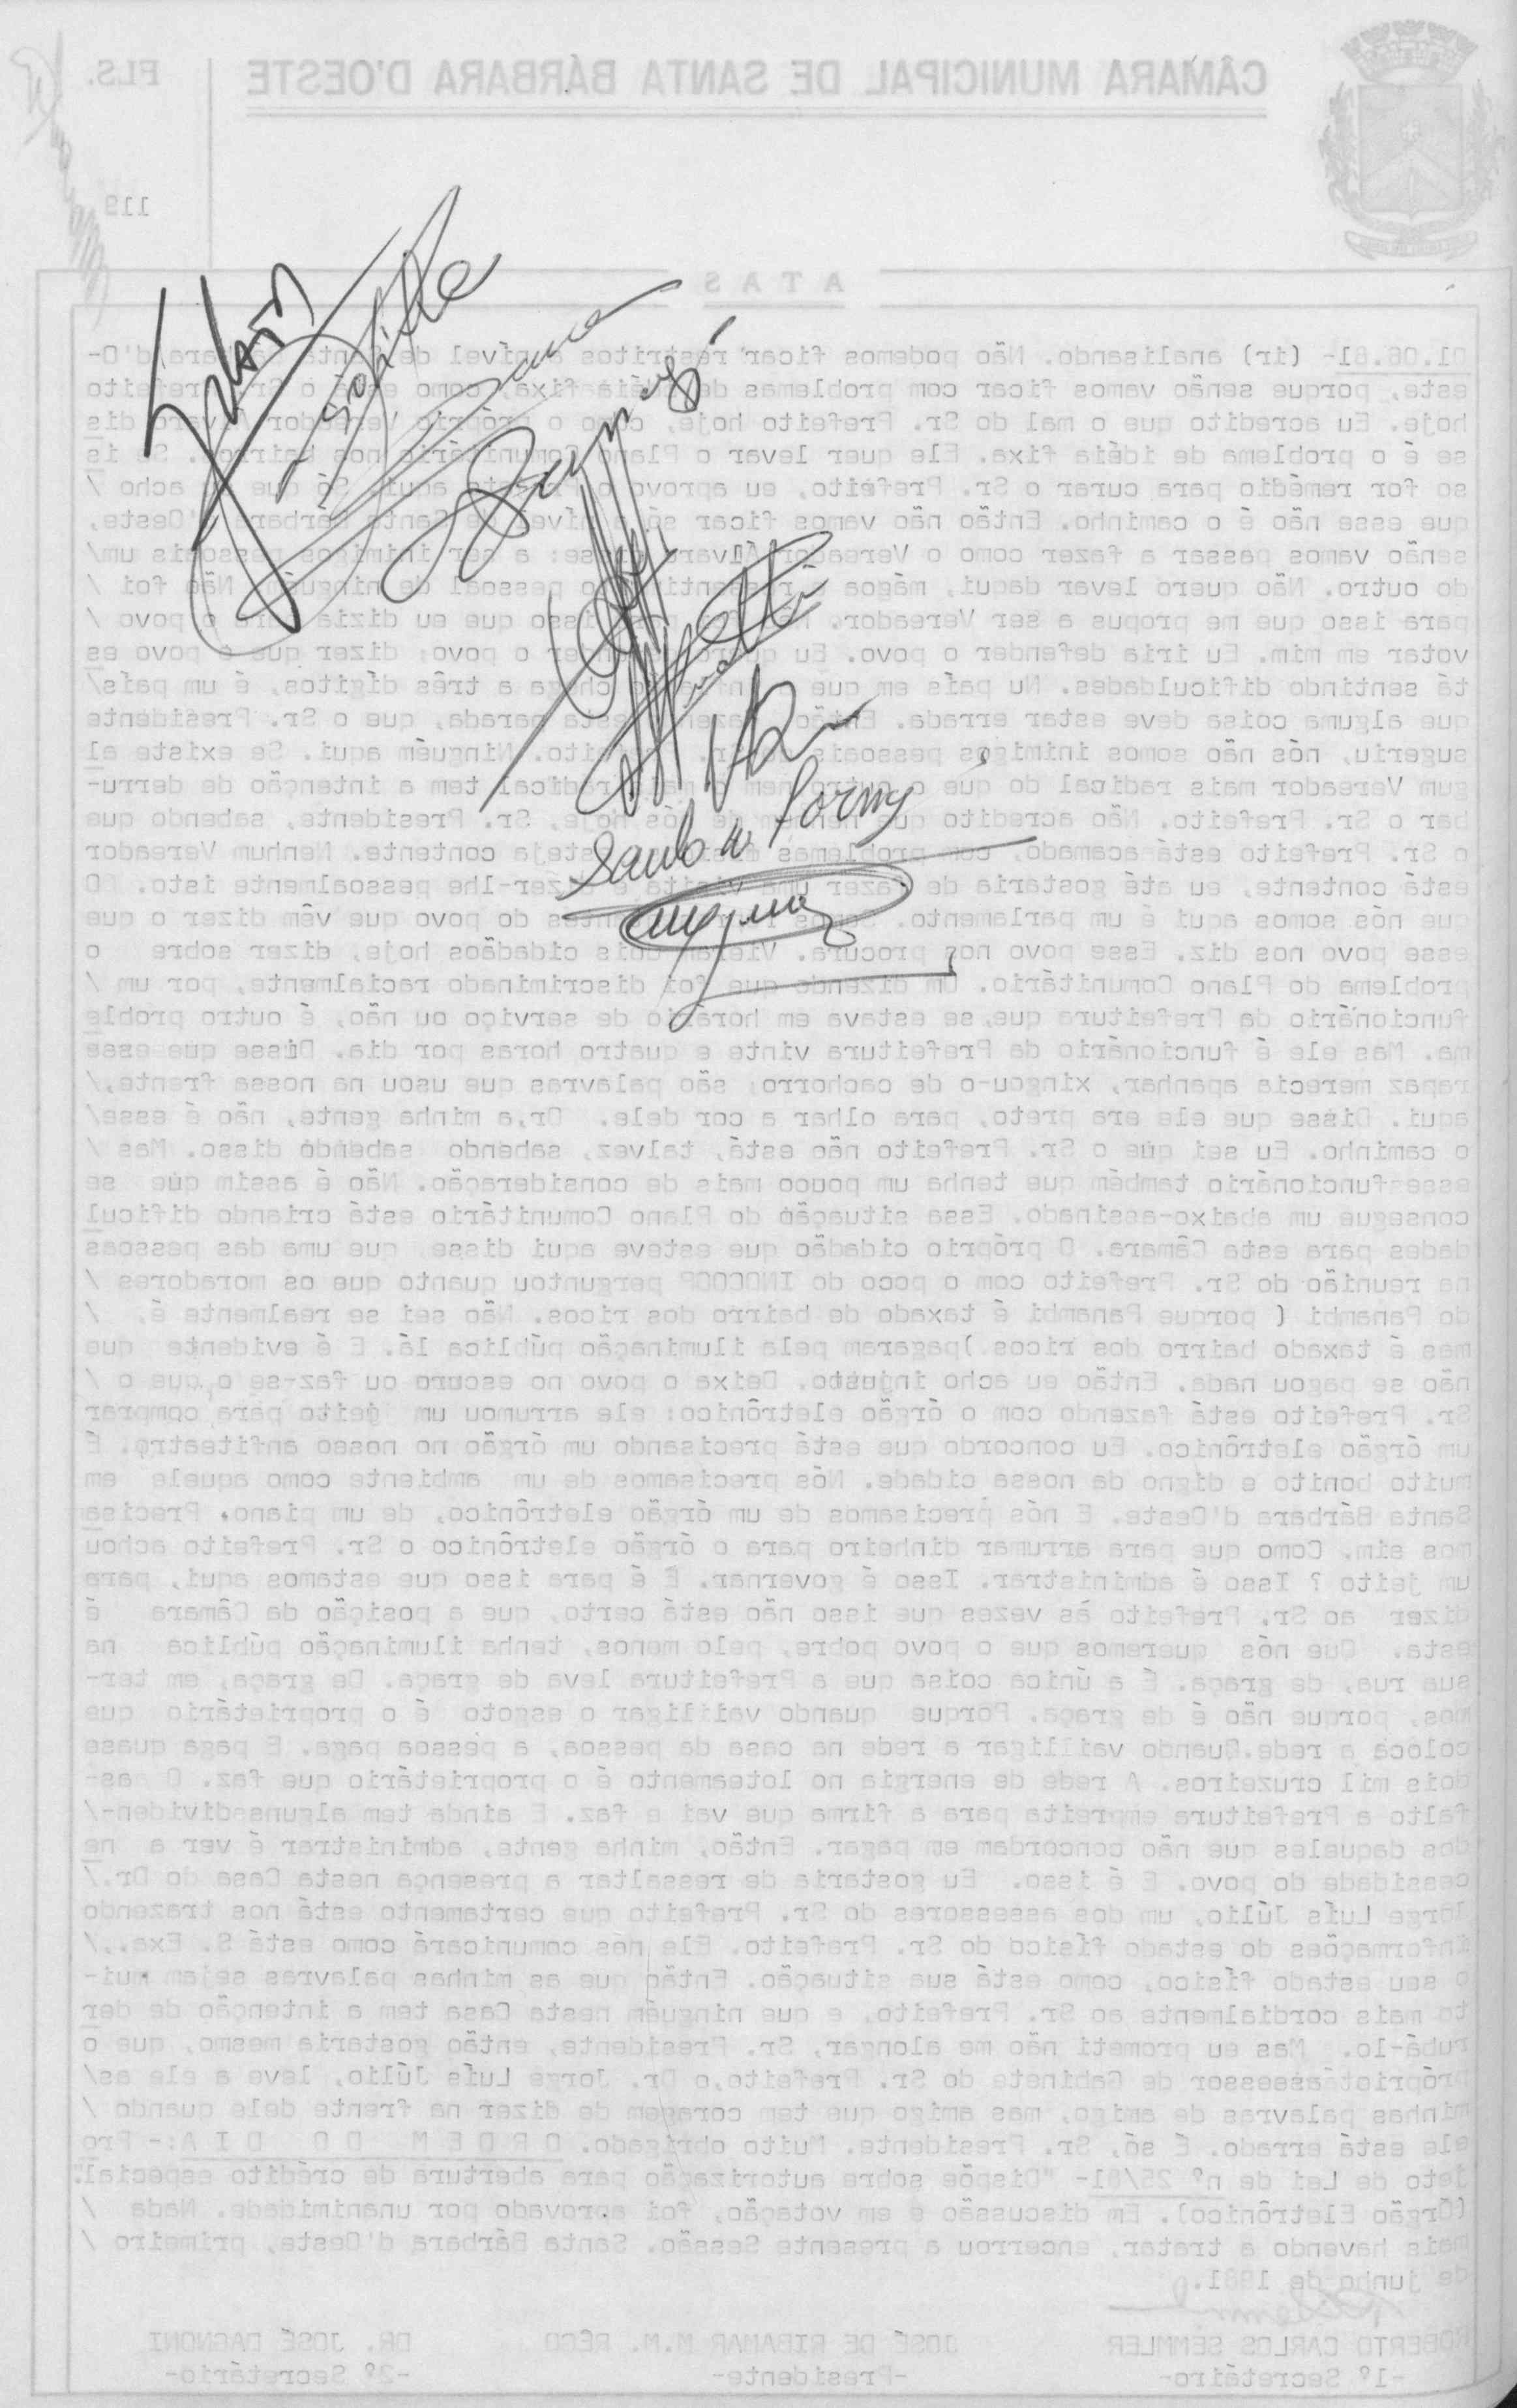 CÂMARA MUNICIPAL DE SANTA BÁRBARA D'OESTE
FLS.
119
ATAS
01.06.81- (ir) analisando. Não podemos ficar restritos a nível de Santa Bárbara d'O-
este, porque senão vamos ficar com problemas de idéia fixa, como está o Sr. Prefeito
hoje. Eu acredito que o mal do Sr. Prefeito hoje, como o próprio Vereador Álvaro dis
se é o problema de idéia fixa. Ele quer levar o Plano Comunitário nos bairros. Se is
so for remédio para curar o Sr. Prefeito, eu aprovo o Projeto aqui. Só que eu acho /
que esse não é o caminho. Então não vamos ficar só a nível de Santa Bárbara d'Oeste,
senão vamos passar a fazer como o Vereador Álvaro disse: a ser inimigos pessoais um/
do outro. Não quero levar daqui, mágoa ressentimento pessoal de ninguém. Não foi /
para isso que me propus a ser Vereador. Não foi por isso que eu dizia para o povo /
votar em mim. Eu iria defender o povo. Eu quero defender o povo; dizer que o povo es
tá sentindo dificuldades. Nu país em que a inflação chega a três dígitos, é um país/
que alguma coisa deve estar errada. Então fazer esta parada, que o Sr. Presidente
sugeriu, nós não somos inimigos pessoais do Sr. Prefeito. Ninguém aqui. Se existe al
gum Vereador mais radical do que o outro nem o mais radical tem a intenção de derru-
bar o Sr. Prefeito. Não acredito que nenhum de nós hoje, Sr. Presidente, sabendo que
o Sr. Prefeito está acamado, com problemas esteja contente. Nenhum Vereador
está contente, eu até gostaria de fazer uma visita e dizer-lhe pessoalmente isto. O
que nós somos aqui é um parlamento. Somos representantes do povo que vêm dizer o que
esse povo nos diz. Esse povo nos procura. Vieram dois cidadãos hoje, dizer sobre o
problema do Plano Comunitário. Um dizendo que foi discriminado racialmente, por um /
funcionário da Prefeitura que, se estava em horário de serviço ou não, é outro proble
ma. Mas ele é funcionário da Prefeitura vinte e quatro horas por dia. Disse que esse
rapaz merecia apanhar, xingou-o de cachorro; são palavras que usou na nossa frente,/
aqui. Disse que ele era preto, para olhar a cor dele. Or,a minha gente, não é esse/
o caminho. Eu sei que o Sr. Prefeito não está, talvez, sabendo sabendo disso. Mas /
esse funcionário também que tenha um pouco mais de consideração. Não é assim que se
consegue um abaixo-assinado. Essa situação do Plano Comunitário está criando dificul
dades para esta Câmara. O próprio cidadão que esteve aqui disse, que uma das pessoas
na reunião do Sr. Prefeito com o poco do INOCOOP perguntou quanto que os moradores /
do Panambi ( porque Panambi é taxado de bairro dos ricos. Não sei se realmente é, /
mas é taxado bairro dos ricos )pagaram pela iluminação pública lá. E é evidente que
não se pagou nada. Então eu acho injusto. Deixa o povo no escuro ou faz-se o que o /
Sr. Prefeito está fazendo com o órgão eletrônico: ele arrumou um jeito para comprar
um órgão eletrônico. Eu concordo que está precisando um órgão no nosso anfiteatro. É
muito bonito e digno da nossa cidade. Nós precisamos de um ambiente como aquele em
Santa Bárbara d'Oeste. E nós precisamos de um órgão eletrônico, de um piano. Precisa
mos sim. Como que para arrumar dinheiro para o órgão eletrônico o Sr. Prefeito achou
um jeito ? Isso é administrar. Isso é governar. E é para isso que estamos aqui, para
dizer ao Sr. Prefeito às vezes que isso não está certo, que a posição da Câmara é
esta. Que nós queremos que o povo pobre, pelo menos, tenha iluminação pública na
sua rua, de graça. É a única coisa que a Prefeitura leva de graça. De graça, em ter-
mos, porque não é de graça. Porque quando vai ligar o esgoto é o proprietário que
coloca a rede. Quando vai ligar a rede na casa da pessoa, a pessoa paga. E paga quase
dois mil cruzeiros. A rede de energia no loteamento é o proprietário que faz. O as-
falto a Prefeitura empreita para a firma que vai e faz. E ainda tem alguns dividen-/
dos daqueles que não concordam em pagar. Então, minha gente, administrar é ver a ne
cessidade do povo. E é isso. Eu gostaria de ressaltar a presença nesta Casa do Dr./
Jorge Luís Júlio, um dos assessores do Sr. Prefeito que certamente está nos trazendo
informações do estado físico do Sr. Prefeito. Ele nos comunicará como está S. Exa.,/
o seu estado físico, como está sua situação. Então que as minhas palavras sejam mui-
to mais cordialmente ao Sr. Prefeito, e que ninguém nesta Casa tem a intenção de der
rubá-lo. Mas eu prometi não me alongar, Sr. Presidente, então gostaria mesmo, que o
próprio assessor de Gabinete do Sr. Prefeito,o Dr. Jorge Luís Júlio, leve a ele as/
minhas palavras de amigo, mas amigo que tem coragem de dizer na frente dele quando /
ele está errado. É só, Sr. Presidente. Muito obrigado. ORDEM DO DIA:- Pro
jeto de Lei de nº 25/81- "Dispõe sobre autorização para abertura de crédito especial".
(Órgão Eletrônico). Em discussão e em votação, foi aprovado por unanimidade. Nada /
mais havendo a tratar, encerrou a presente Sessão. Santa Bárbara d'Oeste, primeiro /
de junho de 1981.
ROBERTO CARLOS SEMMLER JOSÉ DE RIBAMAR M.M. RÊGO DR. JOSÉ DAGNONI
-1º Secretário- -Presidente- -2º Secretário-